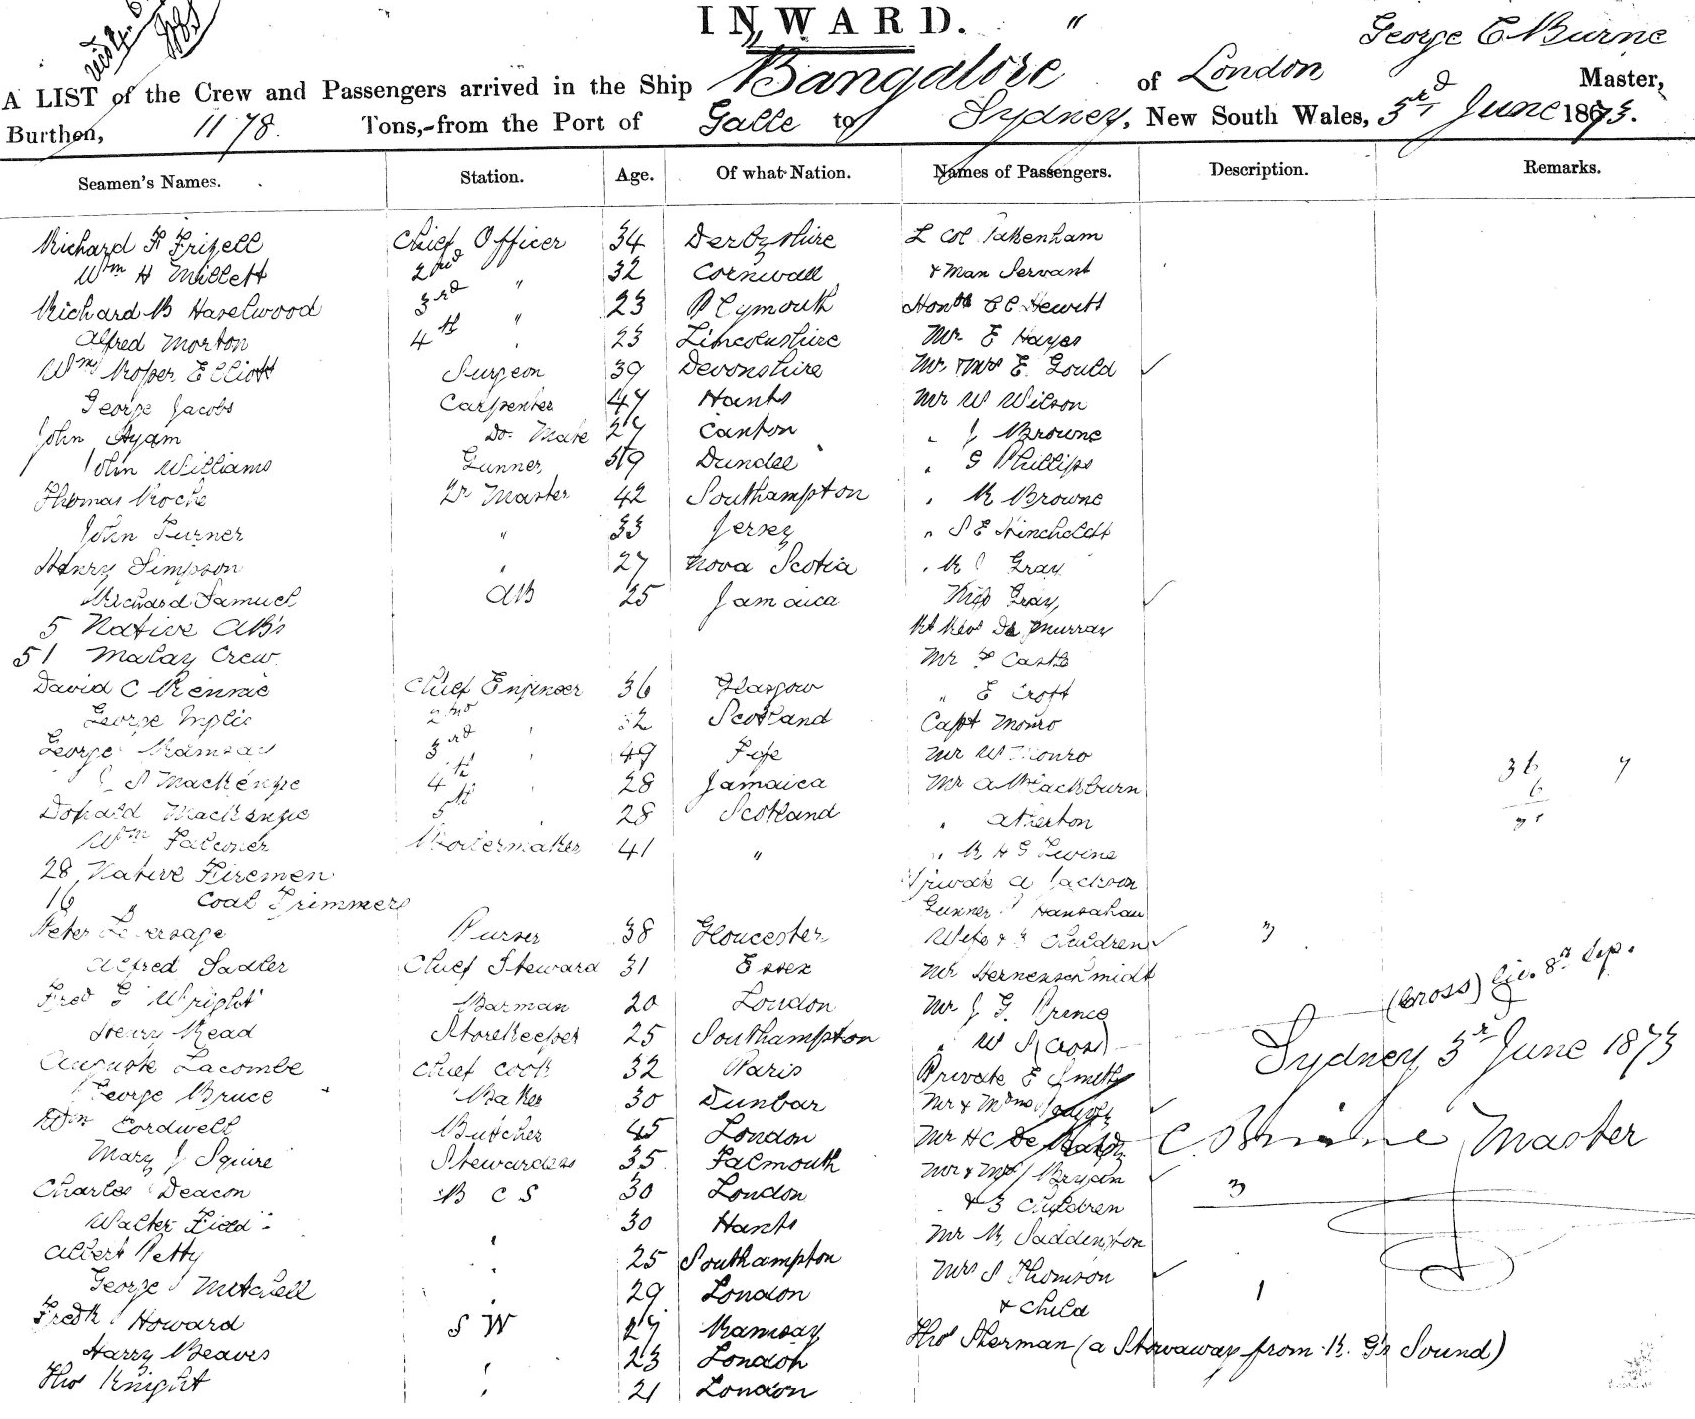 INWARD. "
George E Burne
A LIST of the Crew and Passengers arrived in the Ship Bangalore of London Master,
Burthen, 1178 Tons,-from the Port of Galle to Sydney, New South Wales, 3rd June 1873.
Seamen's Names. Station. Age. Of what Nation. Names of Passengers. Description. Remarks.
Richard F Frizell Chief Officer 34 Derbyshire L Col Pakenham
Wm H Millett 2nd " 32 Cornwall & Man Servant
Richard B Haselwood 3rd " 23 Plymouth Honble E C Hewitt
Alfred Morton 4th " 23 Lincolnshire Mr E Hayes
Wm Roper Elliott Surgeon 39 Devonshire Mr & Mrs E. Gould ✓
George Jacobs Carpenter 47 Hants Mr W Wilson
John Ayam Do. Mate 27 Canton " J Browne
John Williams Gunner Dundee " G Phillips
Thomas Roche Qr Master 42 Southampton " R Browne
John Turner " 33 Jersey " S E Hinchcliff
Henry Simpson " 27 Nova Scotia " R J Gray
Richard Samuel AB 25 Jamaica Miss Gray ✓
5 Native AB's Rt Revd Dr Murray
51 Malay Crew Mr Castle
David C Rennie Chief Engineer 36 Glasgow " E Croft
George 2nd " 32 Scotland Capt Monro
George Ramsay 3rd " 49 Fife Mr W Monro 36 7
J S Mackenzie 4th " 28 Jamaica Mr A Blackburn 6
Donald Mackenzie 5th " 28 Scotland " Atherton
Wm Falconer Boilermaker 41 " " R H G Levine
28 Native Firemen Private A Jackson
16 " Coal Trimmers Gunner J Hanrahan
Peter Leversage Purser 38 Gloucester Wife & 3 Children ✓ 3
Alfred Sadler Chief Steward 31 Essex Mr Hernenschmidt
Fred G Wright Barman 20 London Mr J G. Prince (Cross) 8th Sep.
Henry Read Storekeeper 25 Southampton " W S (Cross) Sydney 3rd June 1873
Auguste Lacombe Chief Cook 32 Paris Private E Smith
George Bruce Baker 30 Dunbar Mr & ✓
Wm Cordwell Butcher 45 London Mr H C De Master
Mary J Squire Stewardess 35 Falmouth Mr & Mrs J Bryan ✓
Charles Deacon B C S 30 London & 3 Children 3
Walter Field " 30 Hants Mr R Saddington
Albert Petty " 25 Southampton Mrs S Thomson ✓
George J Mitchell " 29 London & Child 1
Fredk J Howard S W 27 Ramsay Thos Sherman (a Stowaway from K. G's Sound)
Harry Beaves " 23 London
Thos Knight " 21 London